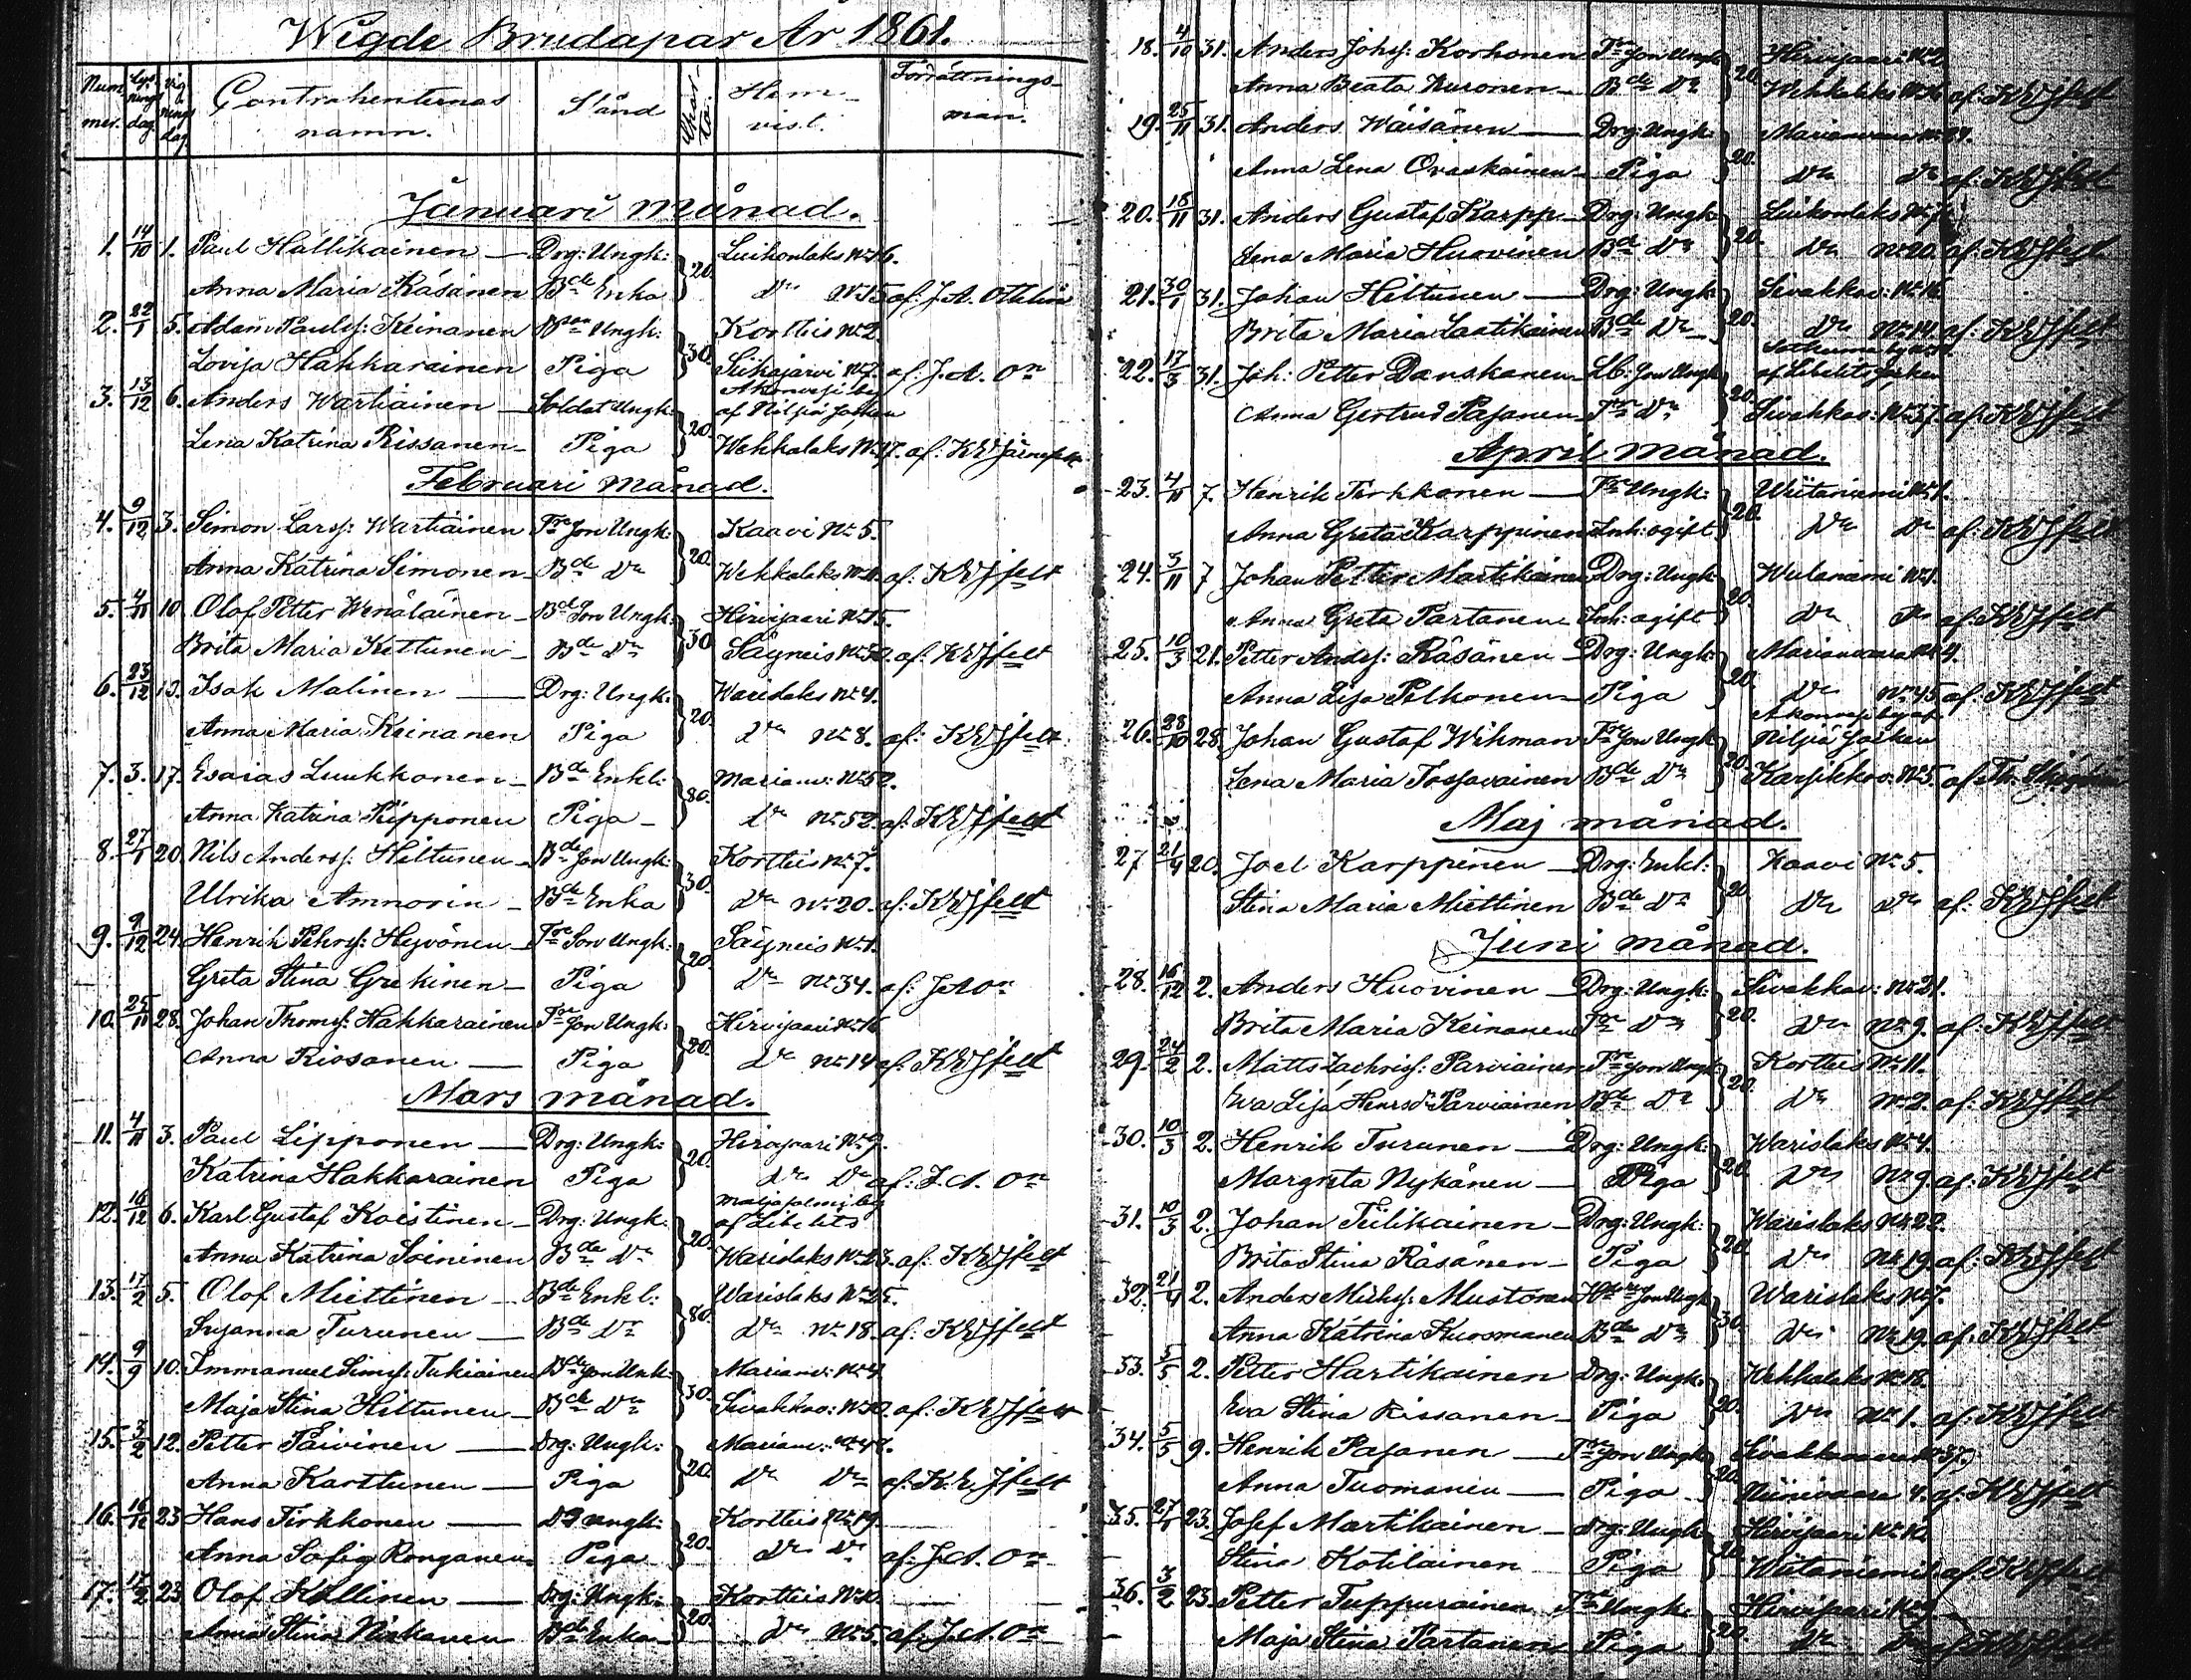 Wigde Brudapar År 1861.
Num mer. Lysningsdag Vigningsdag Contrahenternas namn. Stånd Charta Hemvist. Förrättningsman.
Januari månad.
1. 14/10 1. Paul Hallikainen — Drg: Ungk: 20. Luikonlaks No 16.
Anna Maria Räsänen Bde Enka Do No 15 af: J. A. Othlin
2. 22/1 5. Adam Paulss: Keinänen Ungk: 30. Kortteis No 2.
Lovisa Hakkarainen Piga Siikajärvi No 7. af: J. A. On
3. 13/12 6. Anders Wartiainen — Soldat Ungk: 20. af Nilsiä Socken
Lena Katrina Rissanen — Piga Wehkalaks No 17. af: K E
Februari månad.
4. 9/12 3. Simon Larss: Wartiainen Tre Son Ungk: 20. Kaavi No 5.
Anna Katrina Simonen — Bde Dr Wehkalaks af: K E Jfelt
5. 4/11 10. Olof Petter Wenäläinen — Bde Son Ungk: 30. Hirvijaari No 15.
Brita Maria Kettunen — Bde Dr Säyneis af: K E Jfelt
6. 23/12 13. Isak Malinen — Drg: Ungk: 20. Warislaks No 4.
Anna Maria Keinänen Piga Do No 8. af: K E Jfelt
7. 3. 17. Esaias Luukkonen — Bde Enkl: 80. Marianv: No 52.
Anna Katrina Pipponen Piga — Do No 52. af: K E Jfelt
8. 27/1 20. Nils Anderss: Hiltunen — Bde Son Ungk: 30. Kortteis No 7.
Ulrika Amnorin — Bde Enka Do No 20. af: K E Jfelt
9. 9/12 24. Henrik Pehrss: Hyvönen — Tre Son Ungk: 20. Säyneis No 1.
Greta Stina Grekinen — Piga Do No 34. af: J A On
10. 25/11 28. Johan Thomss: Hakkarainen Tre Son Ungk: 20. Hirvijaari No 16
Anna Rissanen — Piga Do No 14 af: K E Jfelt
Mars månad.
11. 4/11 3. Paul Lipponen — Drg: Ungk: 20. Hirvijaari No 9.
Katrina Hakkarainen Piga Do Do af: J. A. On
12. 16/12 6. Karl Gustaf Koistinen — Drg: Ungk: 20. af Libelits
Anna Katrina Soininen Bde Dr Warislaks No 23. af: K E Jfelt
13. 17/2 5. Olof Miettinen — Bde Enkl: 80. Warislaks No 25.
Susanna Turunen — Bde Dr Do No 18. af: K E Jfelt
14. 9/9 10. Immanuel Simss: Tukiainen Bde Son Unk: 30. Marianv: No 4
Maja Stina Hiltunen — Bde Dr Sivakkav: No 30. af: K E Jfelt
15. 3/2 12. Petter Päivinen — Drg: Ungk: 20. Marianv: No 48.
Anna Karttunen — Piga Do Do af: K. E. Jfelt
16. 16/12 23 Hans Tirkkonen — Ungk: 20. Kortteis No 19.
Anna Sofia Ronganen Piga Do Do af: J. A. On
17. 17/2 23 Olof Kallinen — Drg: Ungk: 20. Kortteis No 10.
Anna Stina Niskanen Bde Enka — Do No 5. af: J. A. On
18. 4/10 31. Anders Johss: Korhonen Tre Son Ungk 20. Hirvijaari No 2
Anna Beata Kuronen — Bde Dr Wehkalaks af: K E Jfelt
19. 25/11 31. Anders Wäisänen — Drg: Ungk: 20. Marianvaara
Anna Lena Ovaskainen — Piga Do Do af: K E Jfelt
20. 18/11 31. Anders Gustaf Karpp. — Drg: Ungk: 20. Luikonlaks No 7
Lena Maria Huovinen Bde Dr Do No 20. af: K E Jfelt
21. 30/1 31. Johan Hiltunen — Drg: Ungk: 20. Sivakkav: No 16
Brita Maria Laatikainen Bde Dr — Do No 14. af: K E Jfelt
22. 17/3 31. Joh: Petter Danskanen — Lb: Son Ungk 20. af Libelits Socken
Anna Gertrud Pasanen — Tre Dr Sivakkav: No 37. af: K E Jfelt
April månad.
23. 4/11 7. Henrik Tirkkonen — Tre Ungk: 20. Wiitaniemi No 1.
Anna Greta Karppinen Inh: ogift Do Do af: K E Jfelt
24. 3/11 7 Johan Petter Martikainen Drg: Ungk 20. No 1.
Anna Greta Partanen Inh: ogift Do Do af: K E Jfelt
25. 10/3 21. Petter Anderss: Räsänen — Drg: Ungk: 20. Marianvaara No 4.
Anna Lisa Pelkonen — Piga Do No 45 af: K E Jfelt
26. 28/10 28. Johan Gustaf Wihman Tre Son Ungk 20. Nilsiä Socken
Lena Maria Tossavainen Bde Dr No 5. af
Maj månad.
27 21/4 20. Joel Karppinen — Drg: Enkl: 20. Kaavi No 5.
Stina Maria Miettinen Bde Dr Do Do af: K E Jfelt
Juni månad.
28. 16/12 2. Anders Huovinen — Drg: Ungk: 20. Sivakkav: No 21.
Brita Maria Keinänen Tre Dr Do No 9. af: K E Jfelt
29. 24/2 2. Matts Zachriss: Parviainen Tre Son Ungk: 20. Kortteis No 11.
Eva Lisa Henrsdr Parviainen Bde Dr Do No 2. af: K E Jfelt
30. 10/3 2. Henrik Turunen — Drg: Ungk: 20. Warislaks No 4.
Margreta Nykänen — Piga Do No 9. af: K E Jfelt
31. 10/3 2. Johan Tiilikainen — Drg: Ungk: 20. Warislaks No 22.
Brita Stina Räsänen — Piga Do No 19. af: K E Jfelt
32. 21/4 2. Anders Michss: Mustonen Son Ungk 30. Warislaks No 7.
Anna Katrina Kuosmanen Bde Dr Do No 19. af: K E Jfelt
33. 5/5 2. Petter Hartikainen Drg: Ungk: 20. Wehkalaks No 18.
Eva Stina Rissanen — Piga Do No 1. af: K E Jfelt
34. 5/5 9. Henrik Pasanen — Tre Son Ungk 20. Sivakkavaara No 37.
Anna Tuomanen — Piga Niinivaara 4. af: K E Jfelt
35. 27/1 23. Josef Martikainen — Drg: Ungk 20. Hirvijaari No 12
Stina Kotilainen Piga Wiitaniemi af: K E Jfelt
36. 3/2 23. Petter Tuppurainen Tre Ungk: 20. Hirvijaari No 9
Maja Stina Partanen Piga Do af: K E Jfelt